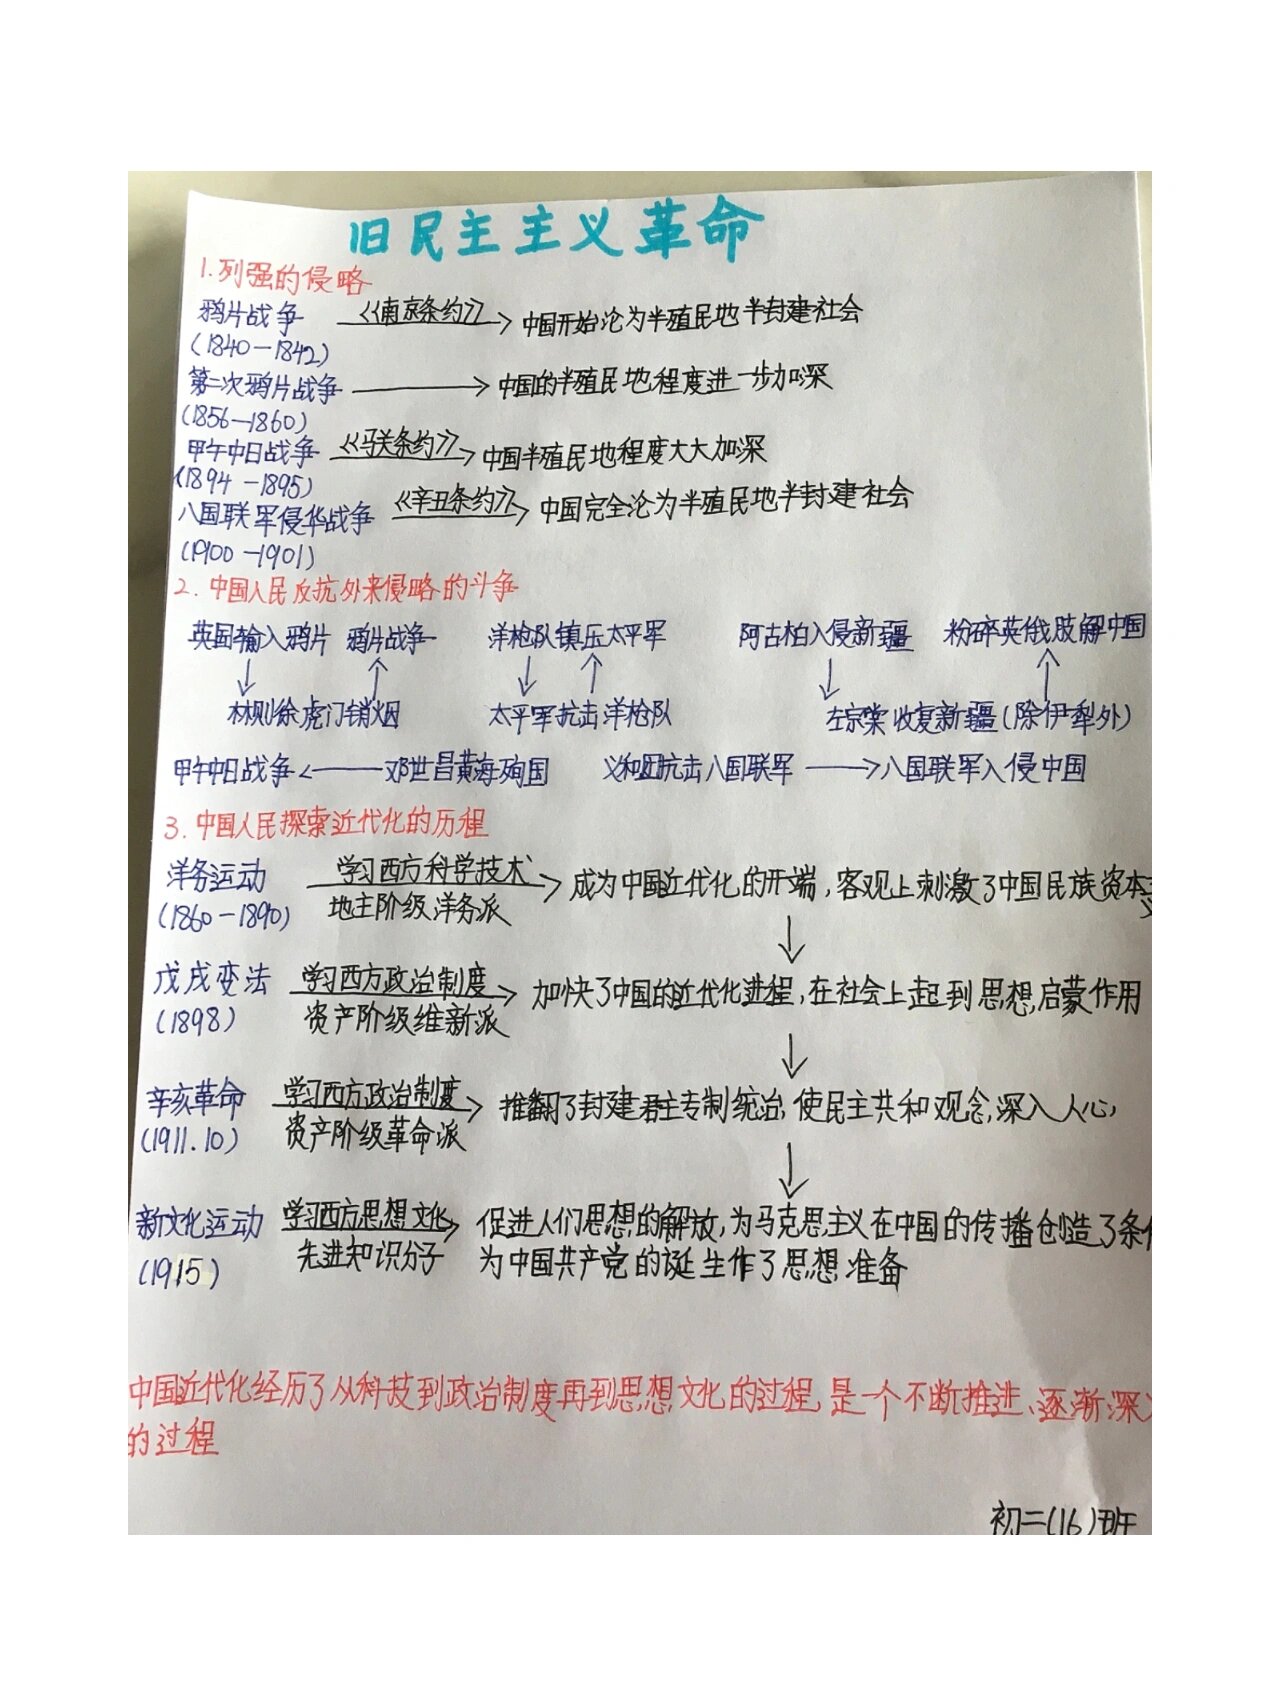 旧民主主义革命
1.列强的侵略
鸦片战争 《南京条约》 中国开始沦为半殖民地半封建社会
(1840-1842)
第二次鸦片战争 中国的半殖民地程度进一步加深
(1856-1860)
甲午中日战争 《马关条约》 中国半殖民地程度大大加深
(1894-1895)
八国联军侵华战争 《辛丑条约》 中国完全沦为半殖民地半封建社会
(1900-1901)
2.中国人民反抗外来侵略的斗争
英国输入鸦片 鸦片战争 洋枪队镇压太平军 阿古柏入侵新疆 粉碎英俄肢解中国
林则徐虎门销烟 太平军抗击洋枪队 左宗棠收复新疆(除伊犁外)
甲午中日战争 邓世昌黄海殉国 义和团抗击八国联军 八国联军入侵中国
3.中国人民探索近代化的历程
洋务运动 学习西方科学技术 成为中国近代化的开端,客观上刺激了中国民族资本主
(1860-1890) 地主阶级洋务派 义
戊戌变法 学习西方政治制度 加快了中国的近代化进程,在社会上起到思想启蒙作用
(1898) 资产阶级维新派
辛亥革命 学习西方政治制度 推翻了封建君主专制统治,使民主共和观念,深入人心,
(1911.10) 资产阶级革命派
新文化运动 学习西方思想文化 促进人们思想的解放,为马克思主义在中国的传播创造了条件
(1915) 先进知识分子 为中国共产党的诞生作了思想准备
中国近代化经历了从科技到政治制度再到思想文化的过程,是一个不断推进、逐渐深入
的过程
初二(16)班